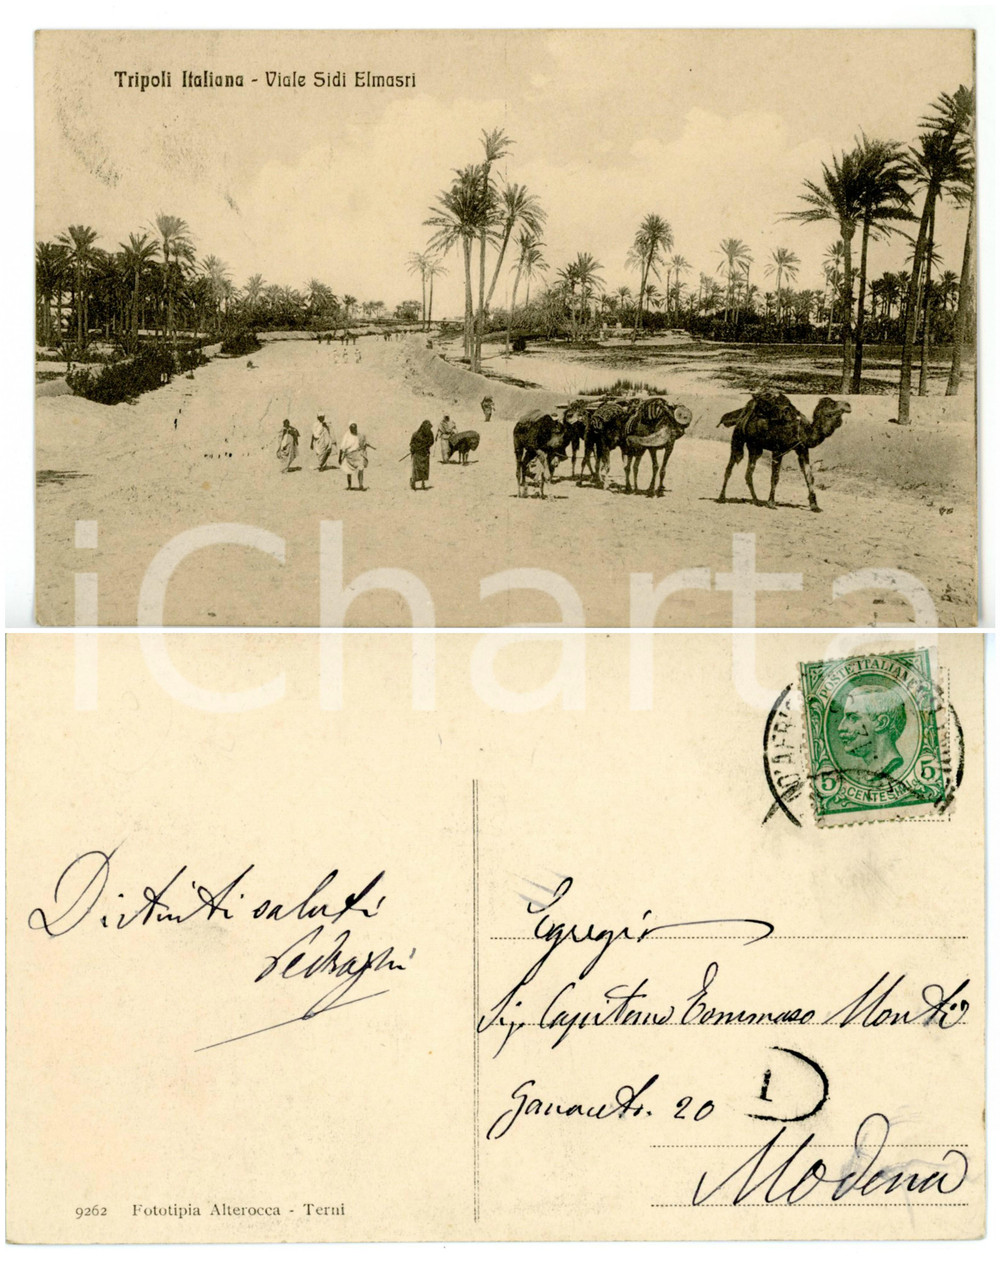 Tripoli Italiana - Viale Sidi Elmasri
iCharta
POSTE ITALIANE
5 5
CENTESIMI
D'AFRI
Distinti saluti
Egregio
Sig. Capitano Tommaso Monti
20
1
Modena
9262 Fototipia Alterocca - Terni